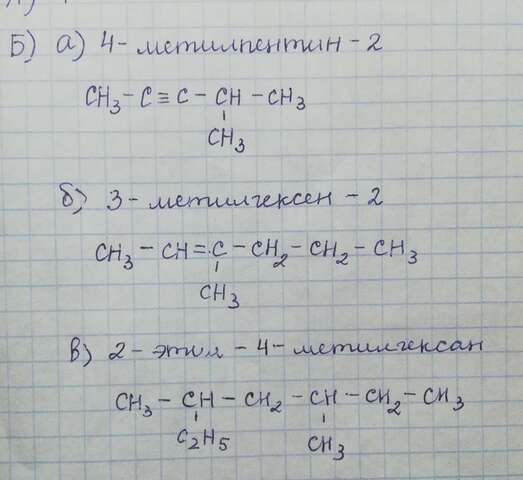 Б) а) 4-метилпентин-2
CH3-C≡C-CH-CH3
CH3
б) 3-метилгексен-2
CH3-CH=C-CH2-CH2-CH3
CH3
в) 2-этил-4-метилгексан
CH3-CH-CH2-CH-CH2-CH3
C2H5 CH3